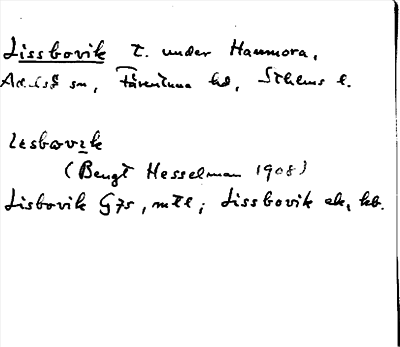 Lissbovik t. under Hammora,
sn, Färentuna hd, Sthlms l.
lɩsbωvɩk
(Bengt Hesselman 1908)
Lisbovik G7s, mtl; Lissbovik ek, kb.